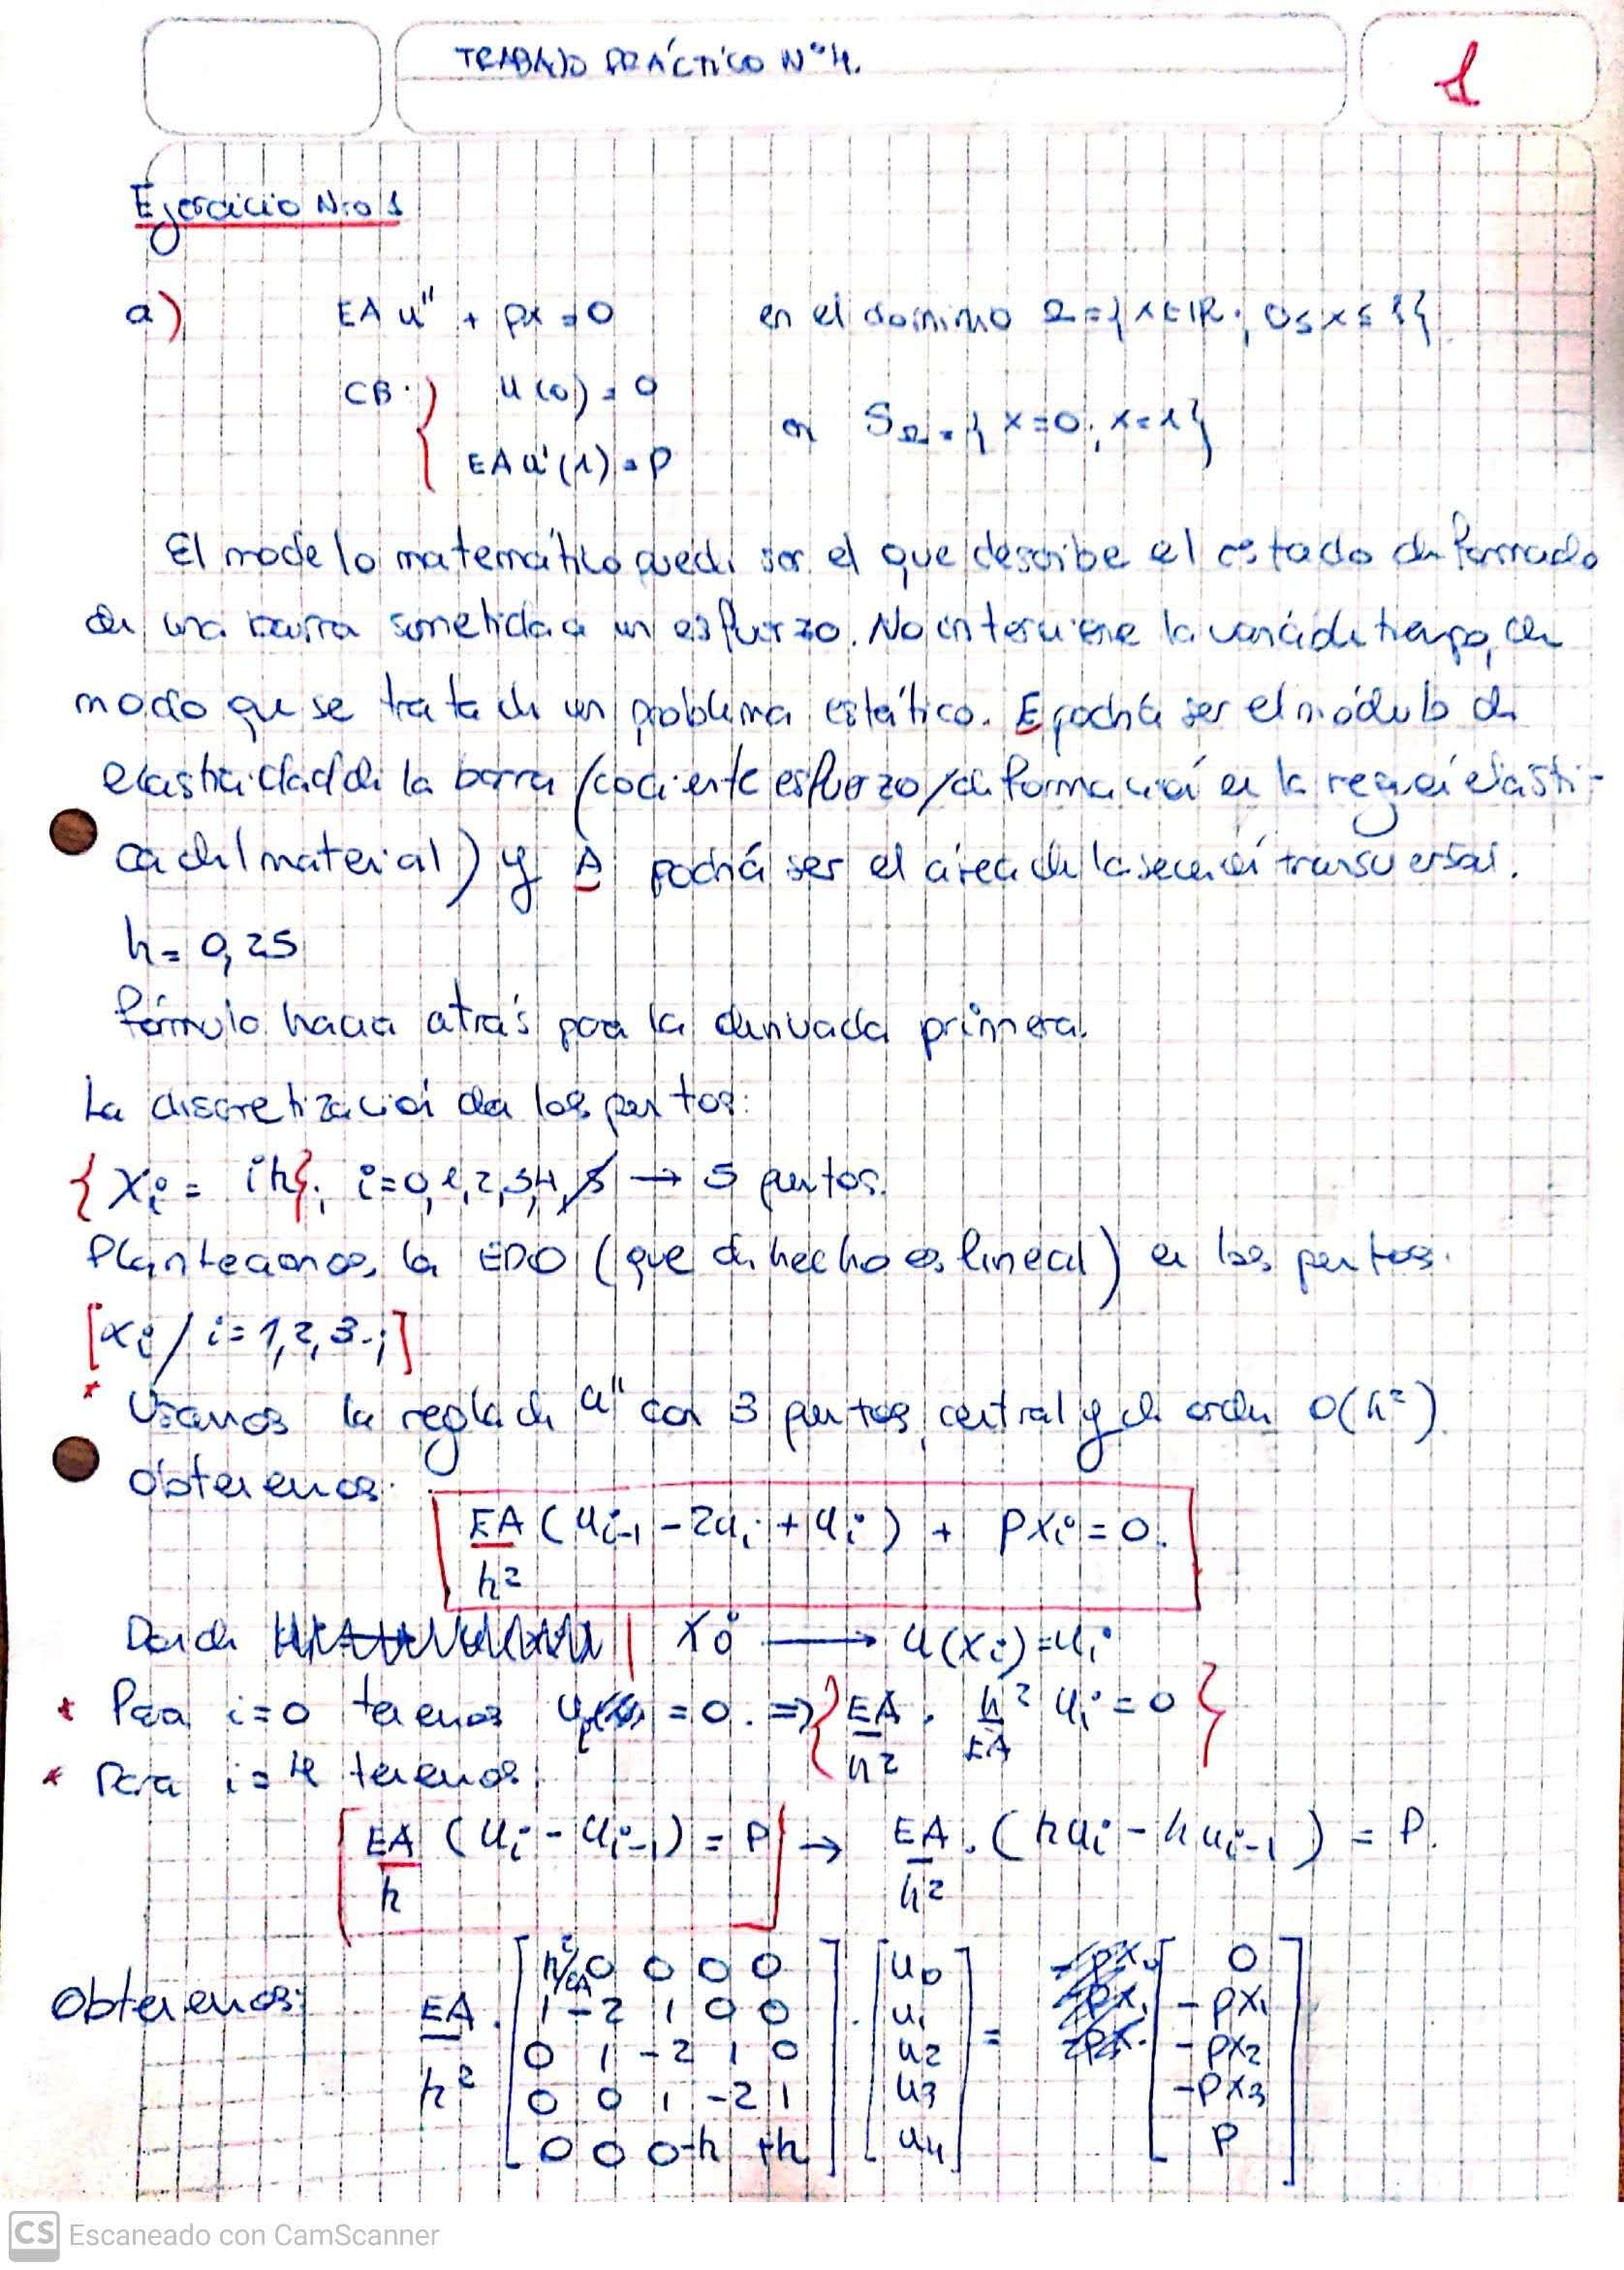 TRABAJO PRÁCTICO N°4.
1
Ejercicio Nro 1
a) EA u'' + px = 0 en el dominio Ω = {x∈IR; 0≤x≤1}
CB: { u(0) = 0
EA u'(1) = P
en SΩ = { x=0; x=1}
El modelo matemático puede ser el que describe el estado deformado
de una barra sometida a un esfuerzo. No interviene la variable tiempo, de
modo que se trata de un problema estático. E podrá ser el módulo de
elasticidad de la barra (cociente esfuerzo/deformación en la región elásti-
ca del material) y A podrá ser el área de la sección transversal.
h = 0,25
fórmula hacia atrás para la derivada primera.
La discretización da los puntos:
{xi = ih}; i=0,1,2,3,4 → 5 puntos.
Planteamos la EDO (que de hecho es lineal) en los puntos.
[xi / i=1,2,3.;]
* Usamos la regla de u'' con 3 puntos, central y de orden O(h²).
Obtenemos:
EA/h² (ui-1 - 2ui + ui) + pxi = 0.
Donde | xi → u(xi) = ui
* Para i=0 tenemos = 0. ⇒ {EA/h² . h²/EA ui = 0}
* Para i=4 tenemos
[EA/h (ui - ui-1) = P] → EA/h² . (hui - hui-1) = P.
Obtenemos: EA/h² .
[h²/EA 0 0 0 0] [u0] [0]
[1 -2 1 0 0] [u1] [-px1]
[0 1 -2 1 0] . [u2] = [-px2]
[0 0 1 -2 1] [u3] [-px3]
[0 0 0 -h +h] [u4] [P]
CS Escaneado con CamScanner